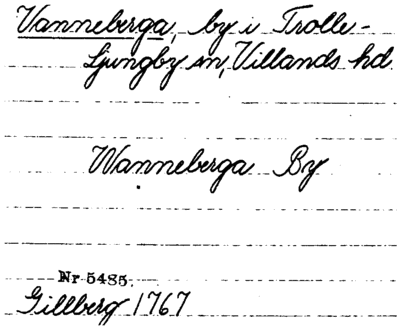 Vanneberga, by i Trolle-
Ljungby sn, Villands hd.
Wanneberga By
Nr 5485.
Gillberg 1767